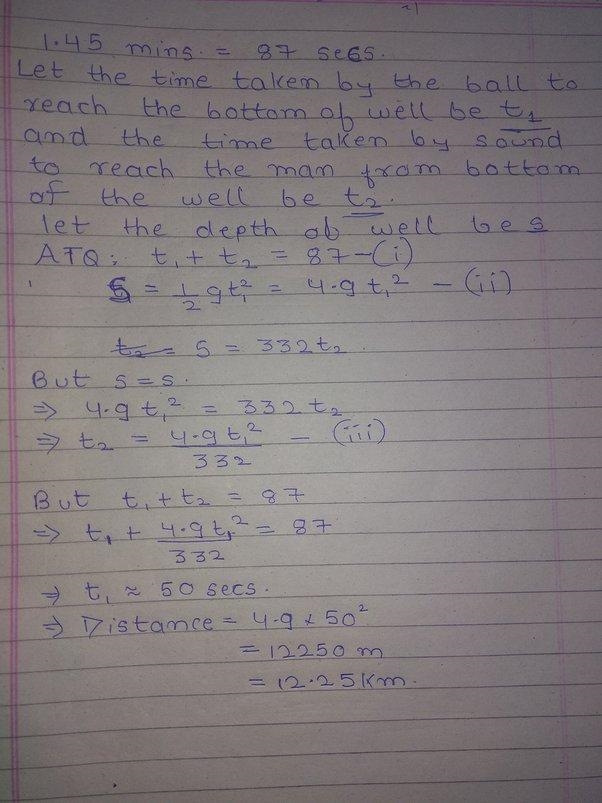 1.45 mins. = 87 secs.
Let the time taken by the ball to
reach the bottom of well be t₁
and the time taken by sound
to reach the man from bottom
of the well be t₂.
let the depth of well be s
ATQ: t₁ + t₂ = 87 — (i)
S = 1/2 gt₁² = 4.9 t₁² — (ii)
t₂ = S = 332t₂.
But s = s.
⇒ 4.9 t₁² = 332 t₂
⇒ t₂ = 4.9 t₁²/332 — (iii)
But t₁ + t₂ = 87
⇒ t₁ + 4.9 t₁²/332 = 87
⇒ t₁ ≈ 50 secs.
⇒ Distance = 4.9 x 50²
= 12250 m
= 12.25 Km.